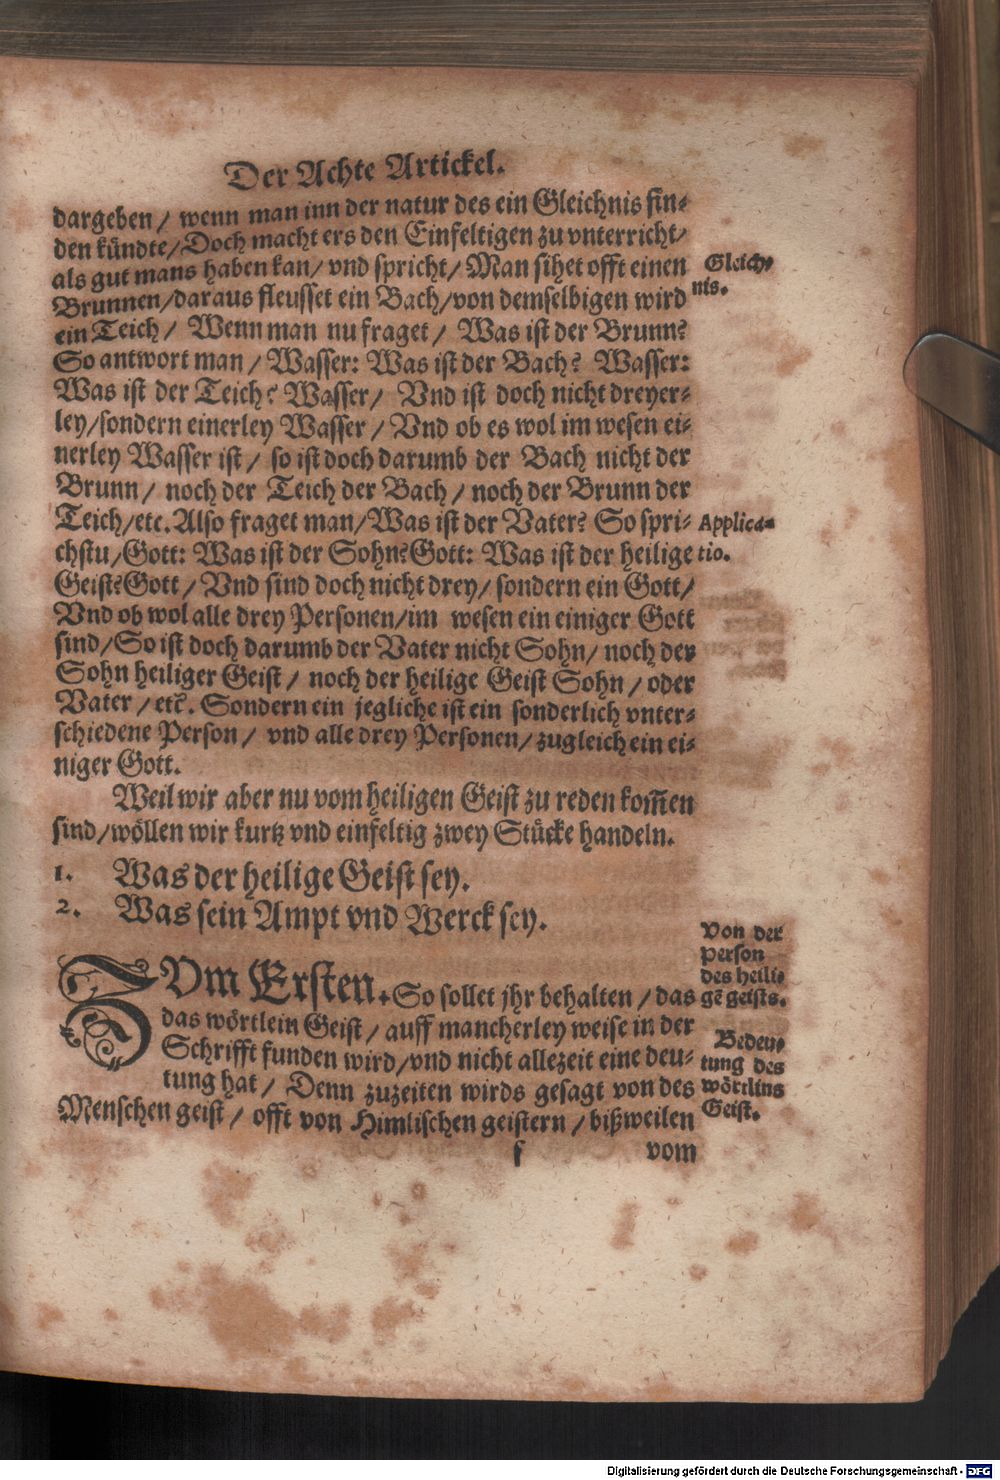 Der Achte Artickel.
dargeben / wenn man inn der natur des ein Gleichnis fin⸗
den kündte/Doch macht ers den Einfeltigen zu vnterricht/
als gut mans haben kan/ vnd spricht/ Man sihet offt einen
Gleich⸗
nis.
Brunnen/daraus fleusset ein Bach/von demselbigen wird
ein Teich / Wenn man nu fraget / Was ist der Brunn?
So antwort man / Wasser: Was ist der Bach? Wasser:
Was ist der Teich? Wasser/ Vnd ist doch nicht dreyer⸗
ley/sondern einerley Wasser / Vnd ob es wol im wesen ei⸗
nerley Wasser ist / so ist doch darumb der Bach nicht der
Brunn / noch der Teich der Bach / noch der Brunn der
Teich/etc. Also fraget man/Was ist der Vater? So spri⸗
Applica⸗
tio.
chstu/Gott: Was ist der Sohn?Gott: Was ist der heilige
Geist?Gott / Vnd sind doch nicht drey/ sondern ein Gott/
Vnd ob wol alle drey Personen/im wesen ein einiger Gott
sind/So ist doch darumb der Vater nicht Sohn/ noch der
Sohn heiliger Geist / noch der heilige Geist Sohn / oder
Vater / etc̄. Sondern ein jegliche ist ein sonderlich vnter⸗
schiedene Person / vnd alle drey Personen/ zugleich ein ei⸗
niger Gott.
Weil wir aber nu vom heiligen Geist zu reden kom̄en
sind/wöllen wir kurtz vnd einfeltig zwey Stücke handeln.
1. Was der heilige Geist sey.
2. Was sein Ampt vnd Werck sey.
Von der
Person
des heili⸗
gē geists.
ZVm Ersten. So sollet jhr behalten / das
das wörtlein Geist / auff mancherley weise in der
Schrifft funden wird/vnd nicht allezeit eine deu⸗
tung hat / Denn zuzeiten wirds gesagt von des
Menschen geist / offt von Himlischen geistern / bißweilen
Bedeu⸗
tung des
wörtlins
Geist.
f vom
Digitalisierung gefördert durch die Deutsche Forschungsgemeinschaft - DFG